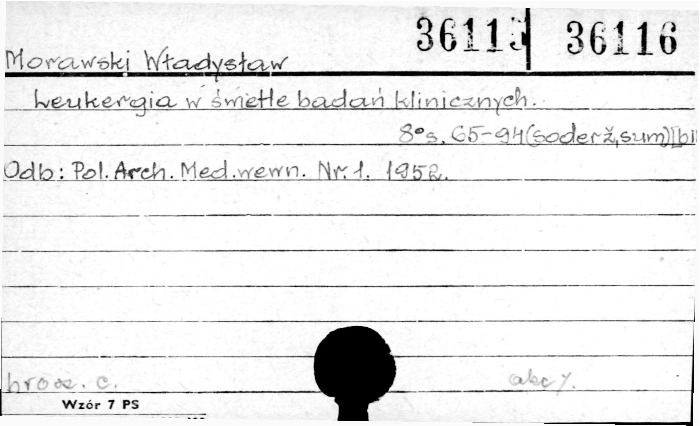 36115 36116
Morawski Władysław
Leukergia w świetle badań klinicznych.
8° s. 65-94 (soderž, sum) [bi
Odb: Pol. Arch. Med. wewn. Nr. 1. 1952.
brosz. c. akc 7.
Wzór 7 PS